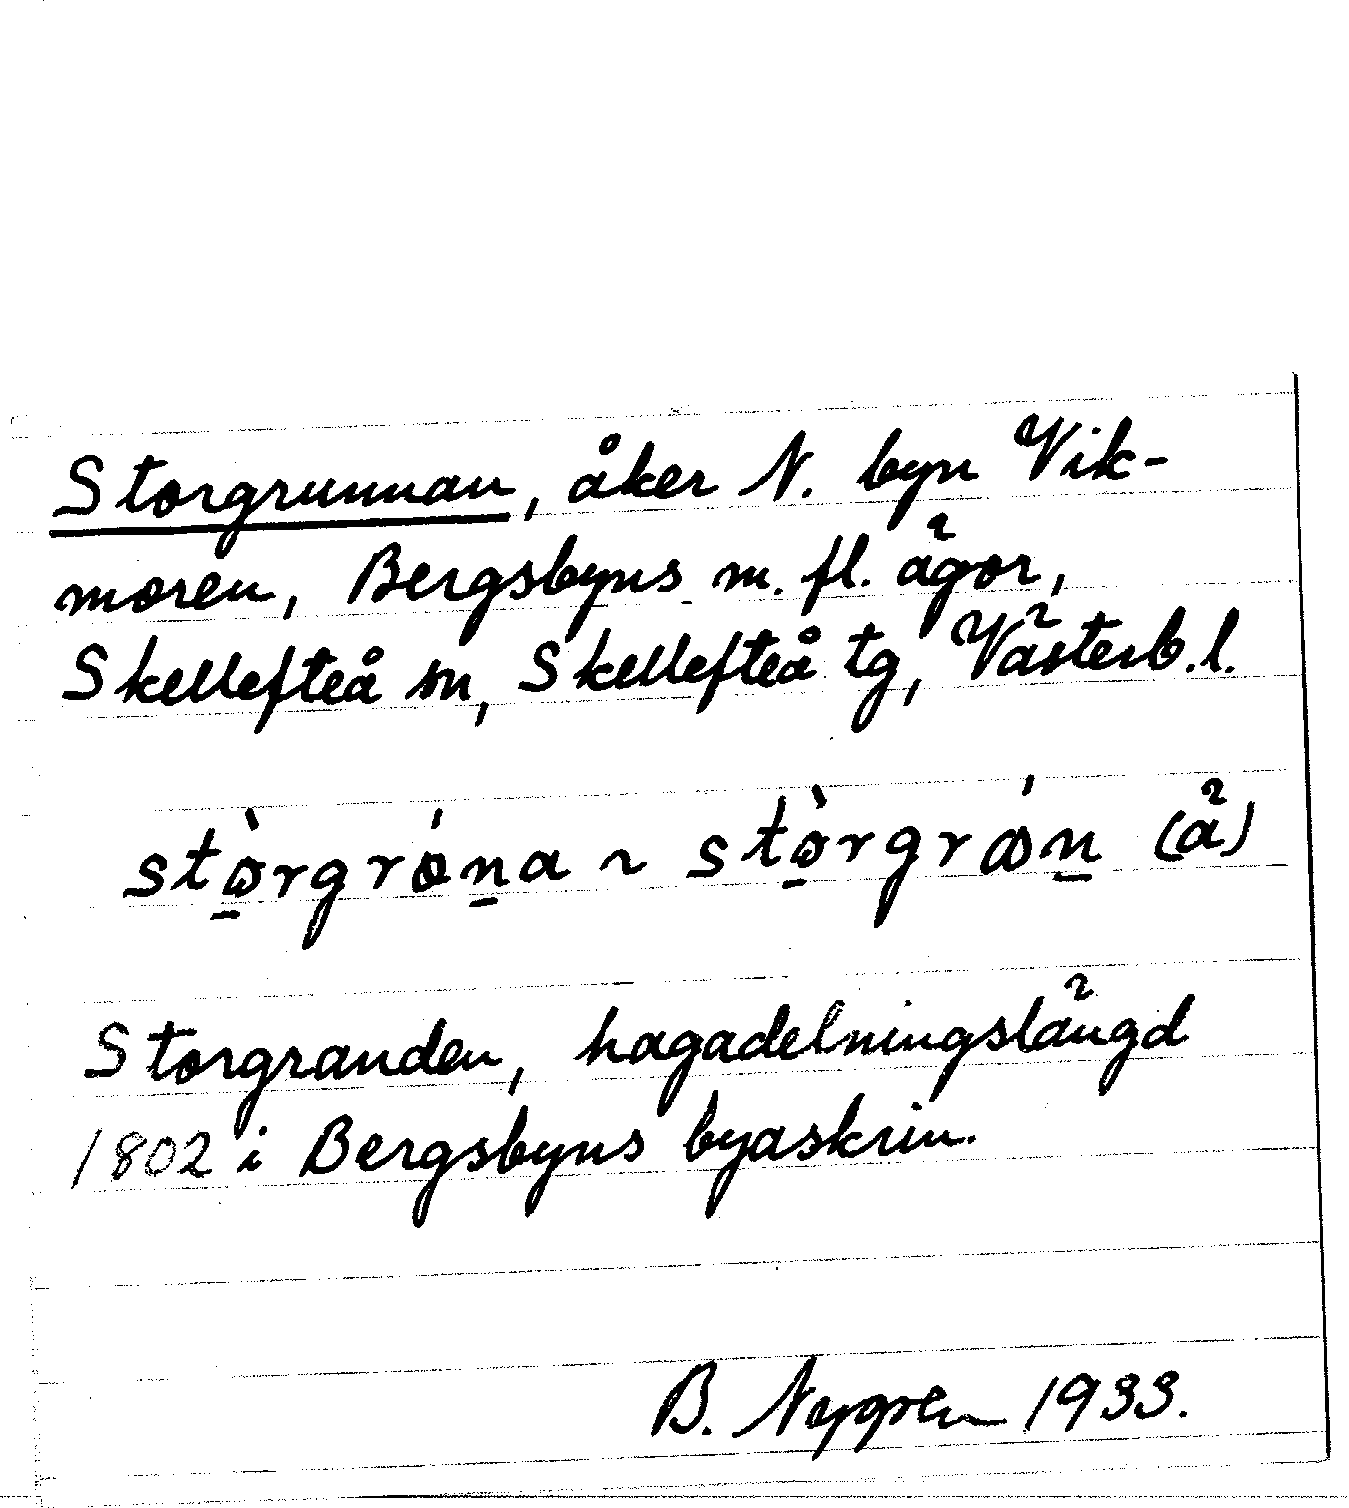 Storgrunnan, åker N. byn Vik-
moren, Bergsbyns m. fl. ägor,
Skellefteå sn, Skellefteå tg, Västerb. l.
stò̱rgróṉa ~ stò̱rgróṉ (ä)
Storgranden, hagadelningslängd
1802 i Bergsbyns byaskrin.
B. Nygren 1933.